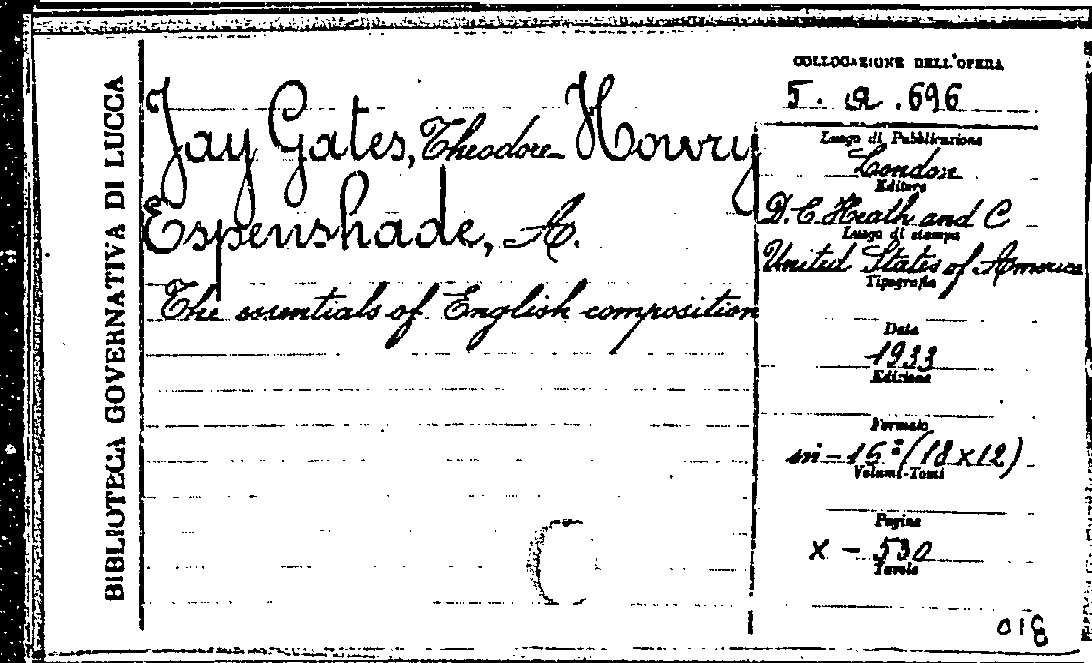 BIBLIOTECA GOVERNATIVA DI LUCCA
Jay Gates, Theodore Howry
Espenshade, A.
The essentials of English composition
COLLOCAZIONE DELL'OPERA
5. a. 696
Luogo di Pubblicazione
London
Editore
D. C. Heath and C
Luogo di stampa
United States of America
Tipografia
Data
1933
Edizione
Formato
in-16º (18x12)
Volumi-Tomi
Pagine
x - 530
Tavole
018